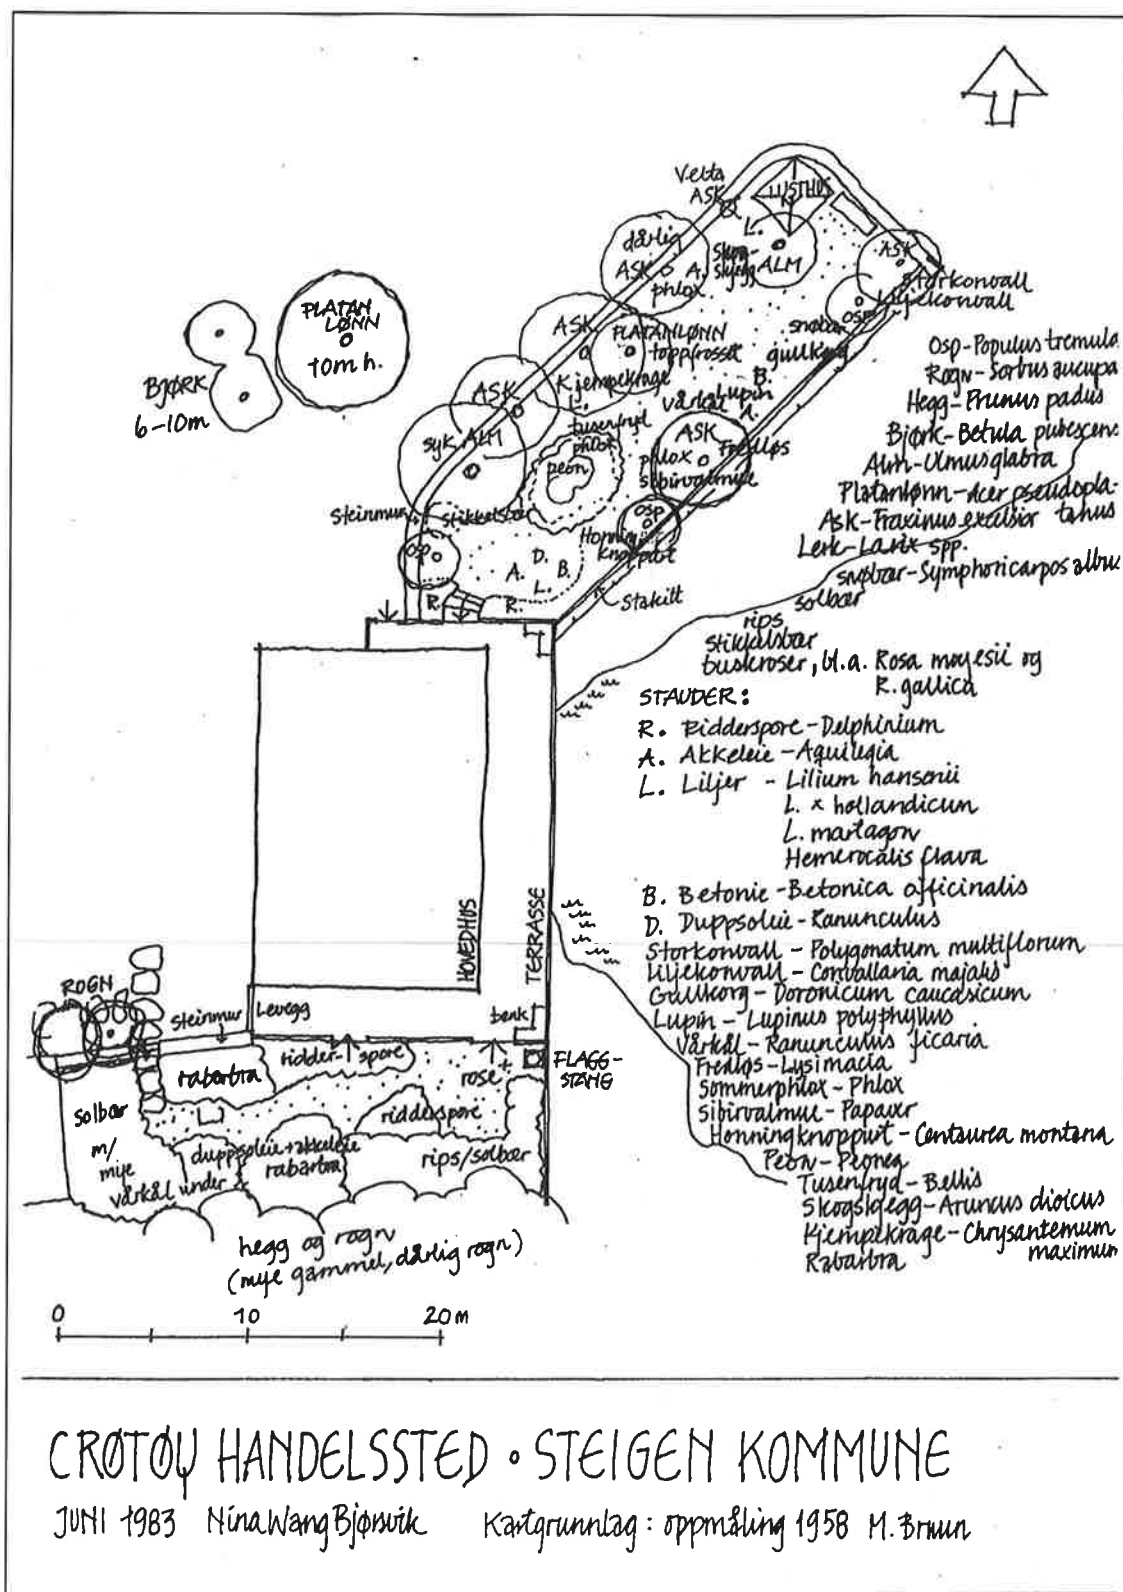 Velta
ASK
LYSTHUS
L.
dårlig
ASK
A.
phlox
Skog-
skjegg
ALM
ASK
Storkonvall
Liljekonvall
OSP
snøbær
gullkorg
PLATAN
LØNN
10m h.
BJØRK
6-10m
ASK
PLATANLØNN
toppfrosset
Kjempekrage
L.
B.
Lupin
A.
vårkål
ASK
Fredløs
phlox
sibirvalmue
ASK
tusenfryd
phlox
peon
syk ALM
Steinmur
stikkelsbær
OSP
OSP
Honning
knoppurt
D.
A.
B.
L.
R.
R.
Stakitt
Osp-Populus tremula
Rogn-Sorbus aucupa
Hegg-Prunus padus
Bjørk-Betula pubescens
Alm-Ulmus glabra
Platanlønn-Acer pseudopla-
Ask-Fraxinus excelsior tanus
Lerk-Larix spp.
snøbær-Symphoricarpos albu
solbær
rips
stikkelsbær
buskroser, bl.a. Rosa moyesii og
R. gallica
STAUDER:
R. Ridderspore-Delphinium
A. Akkeleie-Aquilegia
L. Liljer - Lilium hansonii
L. x hollandicum
L. martagon
Hemerocalis flava
B. Betonie-Betonica officinalis
D. Duppsoleie-Ranunculus
Storkonvall - Polygonatum multiflorum
Liljekonvall - Convallaria majalis
Gullkorg-Doronicum caucasicum
Lupin-Lupinus polyphyllus
Vårkål-Ranunculus ficaria
Fredløs-Lysimacia
Sommerphlox-Phlox
Sibirvalmue-Papaver
Honningknoppurt-Centaurea montana
Peon-Peonea
Tusenfryd-Bellis
Skogskjegg-Aruncus dioicus
Kjempekrage-Chrysantemum
maximum
Rabarbra
HOVEDHUS
TERRASSE
ROGN
Steinmur
Levegg
benk
FLAGG-
STANG
rabarbra
ridder-spore
rose
solbær
m/
mye
vårkål under
ridderspore
duppsoleie+akkeleie
rabarbra
rips/solbær
hegg og rogn
(mye gammel, dårlig rogn)
0 10 20m
GRØTØY HANDELSSTED • STEIGEN KOMMUNE
JUNI 1983 Nina Wang Bjørsvik Kartgrunnlag: oppmåling 1958 M. Bruun